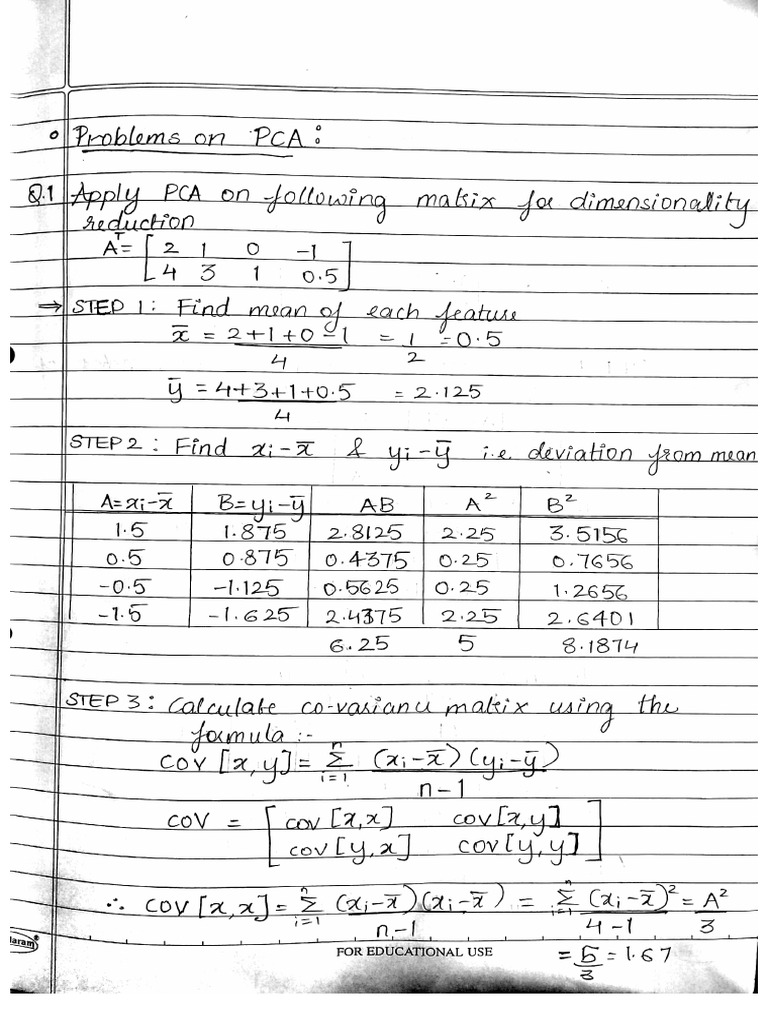 Problems on PCA :
Q.1 Apply PCA on following matrix for dimensionality
reduction
Aᵀ= [ 2 1 0 -1
4 3 1 0.5 ]
⇒ STEP 1: Find mean of each feature
x̄ = 2+1+0-1 / 4 = 1 / 2 = 0.5
ȳ = 4+3+1+0.5 / 4 = 2.125
STEP 2 : Find xi-x̄ & yi-ȳ i.e deviation from mean
A=xi-x̄ B=yi-ȳ AB A² B²
1.5 1.875 2.8125 2.25 3.5156
0.5 0.875 0.4375 0.25 0.7656
-0.5 -1.125 0.5625 0.25 1.2656
-1.5 -1.625 2.4375 2.25 2.6401
6.25 5 8.1874
STEP 3 : Calculate co-variance matrix using the
formula :-
COV [x,y] = n Σ i=1 (xi-x̄)(yi-ȳ) / n-1
COV = [ cov[x,x] cov[x,y]
cov[y,x] cov[y,y] ]
∴ COV [x,x] = n Σ i=1 (xi-x̄)(xi-x̄) / n-1 = n Σ i=1 (xi-x̄)² / 4-1 = A² / 3
= 5 / 3 = 1.67
FOR EDUCATIONAL USE